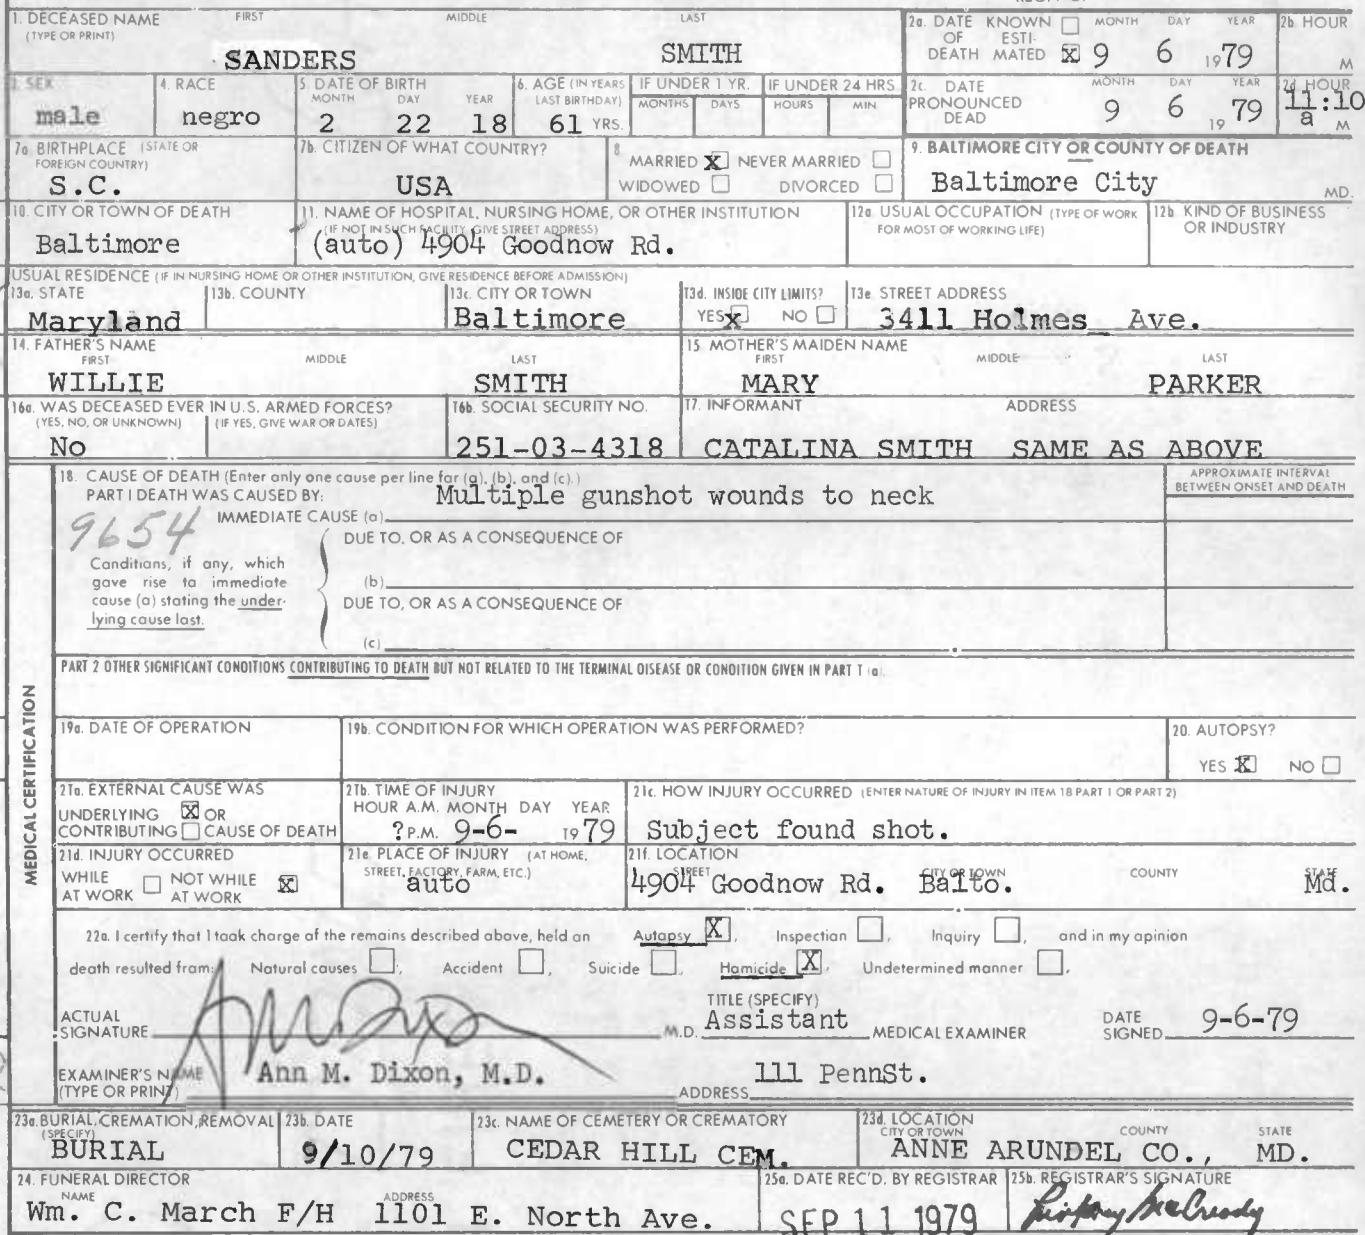 1. DECEASED NAME FIRST MIDDLE LAST
(TYPE OR PRINT)
SANDERS SMITH
2a. DATE OF DEATH KNOWN ☐ ESTIMATED ☒ MONTH DAY YEAR
9 6 1979
2b HOUR
M
3. SEX
male
4. RACE
negro
5. DATE OF BIRTH
MONTH DAY YEAR
2 22 18
6. AGE (IN YEARS LAST BIRTHDAY)
61 YRS.
IF UNDER 1 YR.
MONTHS DAYS
IF UNDER 24 HRS
HOURS MIN
2c. DATE PRONOUNCED DEAD MONTH DAY YEAR
9 6 1979
2d HOUR
11:10
a M
7a BIRTHPLACE (STATE OR FOREIGN COUNTRY)
S.C.
7b. CITIZEN OF WHAT COUNTRY?
USA
8
MARRIED ☒ NEVER MARRIED ☐
WIDOWED ☐ DIVORCED ☐
9. BALTIMORE CITY OR COUNTY OF DEATH
Baltimore City MD.
10. CITY OR TOWN OF DEATH
Baltimore
11. NAME OF HOSPITAL, NURSING HOME, OR OTHER INSTITUTION
(IF NOT IN SUCH FACILITY, GIVE STREET ADDRESS)
(auto) 4904 Goodnow Rd.
12a USUAL OCCUPATION (TYPE OF WORK FOR MOST OF WORKING LIFE)
12b KIND OF BUSINESS OR INDUSTRY
USUAL RESIDENCE (IF IN NURSING HOME OR OTHER INSTITUTION, GIVE RESIDENCE BEFORE ADMISSION)
13a. STATE
Maryland
13b. COUNTY
13c. CITY OR TOWN
Baltimore
13d. INSIDE CITY LIMITS?
YES ☒ NO ☐
13e STREET ADDRESS
3411 Holmes Ave.
14. FATHER'S NAME
FIRST MIDDLE LAST
WILLIE SMITH
15 MOTHER'S MAIDEN NAME
FIRST MIDDLE LAST
MARY PARKER
16a. WAS DECEASED EVER IN U.S. ARMED FORCES?
(YES, NO, OR UNKNOWN) (IF YES, GIVE WAR OR DATES)
No
16b. SOCIAL SECURITY NO.
251-03-4318
17. INFORMANT ADDRESS
CATALINA SMITH SAME AS ABOVE
MEDICAL CERTIFICATION
18. CAUSE OF DEATH (Enter only one cause per line for (a), (b), and (c).)
PART I DEATH WAS CAUSED BY:
IMMEDIATE CAUSE (a) Multiple gunshot wounds to neck
APPROXIMATE INTERVAL BETWEEN ONSET AND DEATH
9654
Conditions, if any, which gave rise to immediate cause (a) stating the underlying cause last.
DUE TO, OR AS A CONSEQUENCE OF
(b)
DUE TO, OR AS A CONSEQUENCE OF
(c)
PART 2 OTHER SIGNIFICANT CONDITIONS CONTRIBUTING TO DEATH BUT NOT RELATED TO THE TERMINAL DISEASE OR CONDITION GIVEN IN PART 1 (a).
19a. DATE OF OPERATION
19b. CONDITION FOR WHICH OPERATION WAS PERFORMED?
20. AUTOPSY?
YES ☒ NO ☐
21a. EXTERNAL CAUSE WAS
UNDERLYING ☒ OR
CONTRIBUTING ☐ CAUSE OF DEATH
21b. TIME OF INJURY
HOUR A.M. MONTH DAY YEAR
? P.M. 9-6- 1979
21c. HOW INJURY OCCURRED (ENTER NATURE OF INJURY IN ITEM 18 PART 1 OR PART 2)
Subject found shot.
21d. INJURY OCCURRED
WHILE AT WORK ☐ NOT WHILE AT WORK ☒
21e PLACE OF INJURY (AT HOME, STREET, FACTORY, FARM, ETC.)
auto
21f. LOCATION
STREET CITY OR TOWN COUNTY STATE
4904 Goodnow Rd. Balto. Md.
22a. I certify that I took charge of the remains described above, held an Autopsy ☒, Inspection ☐, Inquiry ☐, and in my opinion
death resulted from: Natural causes ☐, Accident ☐, Suicide ☐, Homicide ☒, Undetermined manner ☐.
ACTUAL SIGNATURE M.D.
TITLE (SPECIFY)
Assistant MEDICAL EXAMINER
DATE SIGNED 9-6-79
EXAMINER'S NAME (TYPE OR PRINT) Ann M. Dixon, M.D.
ADDRESS 111 PennSt.
23a. BURIAL, CREMATION, REMOVAL (SPECIFY)
BURIAL
23b. DATE
9/10/79
23c. NAME OF CEMETERY OR CREMATORY
CEDAR HILL CEM.
23d. LOCATION
CITY OR TOWN COUNTY STATE
ANNE ARUNDEL CO., MD.
24. FUNERAL DIRECTOR
NAME ADDRESS
Wm. C. March F/H 1101 E. North Ave.
25a. DATE REC'D. BY REGISTRAR
SEP 11 1979
25b. REGISTRAR'S SIGNATURE